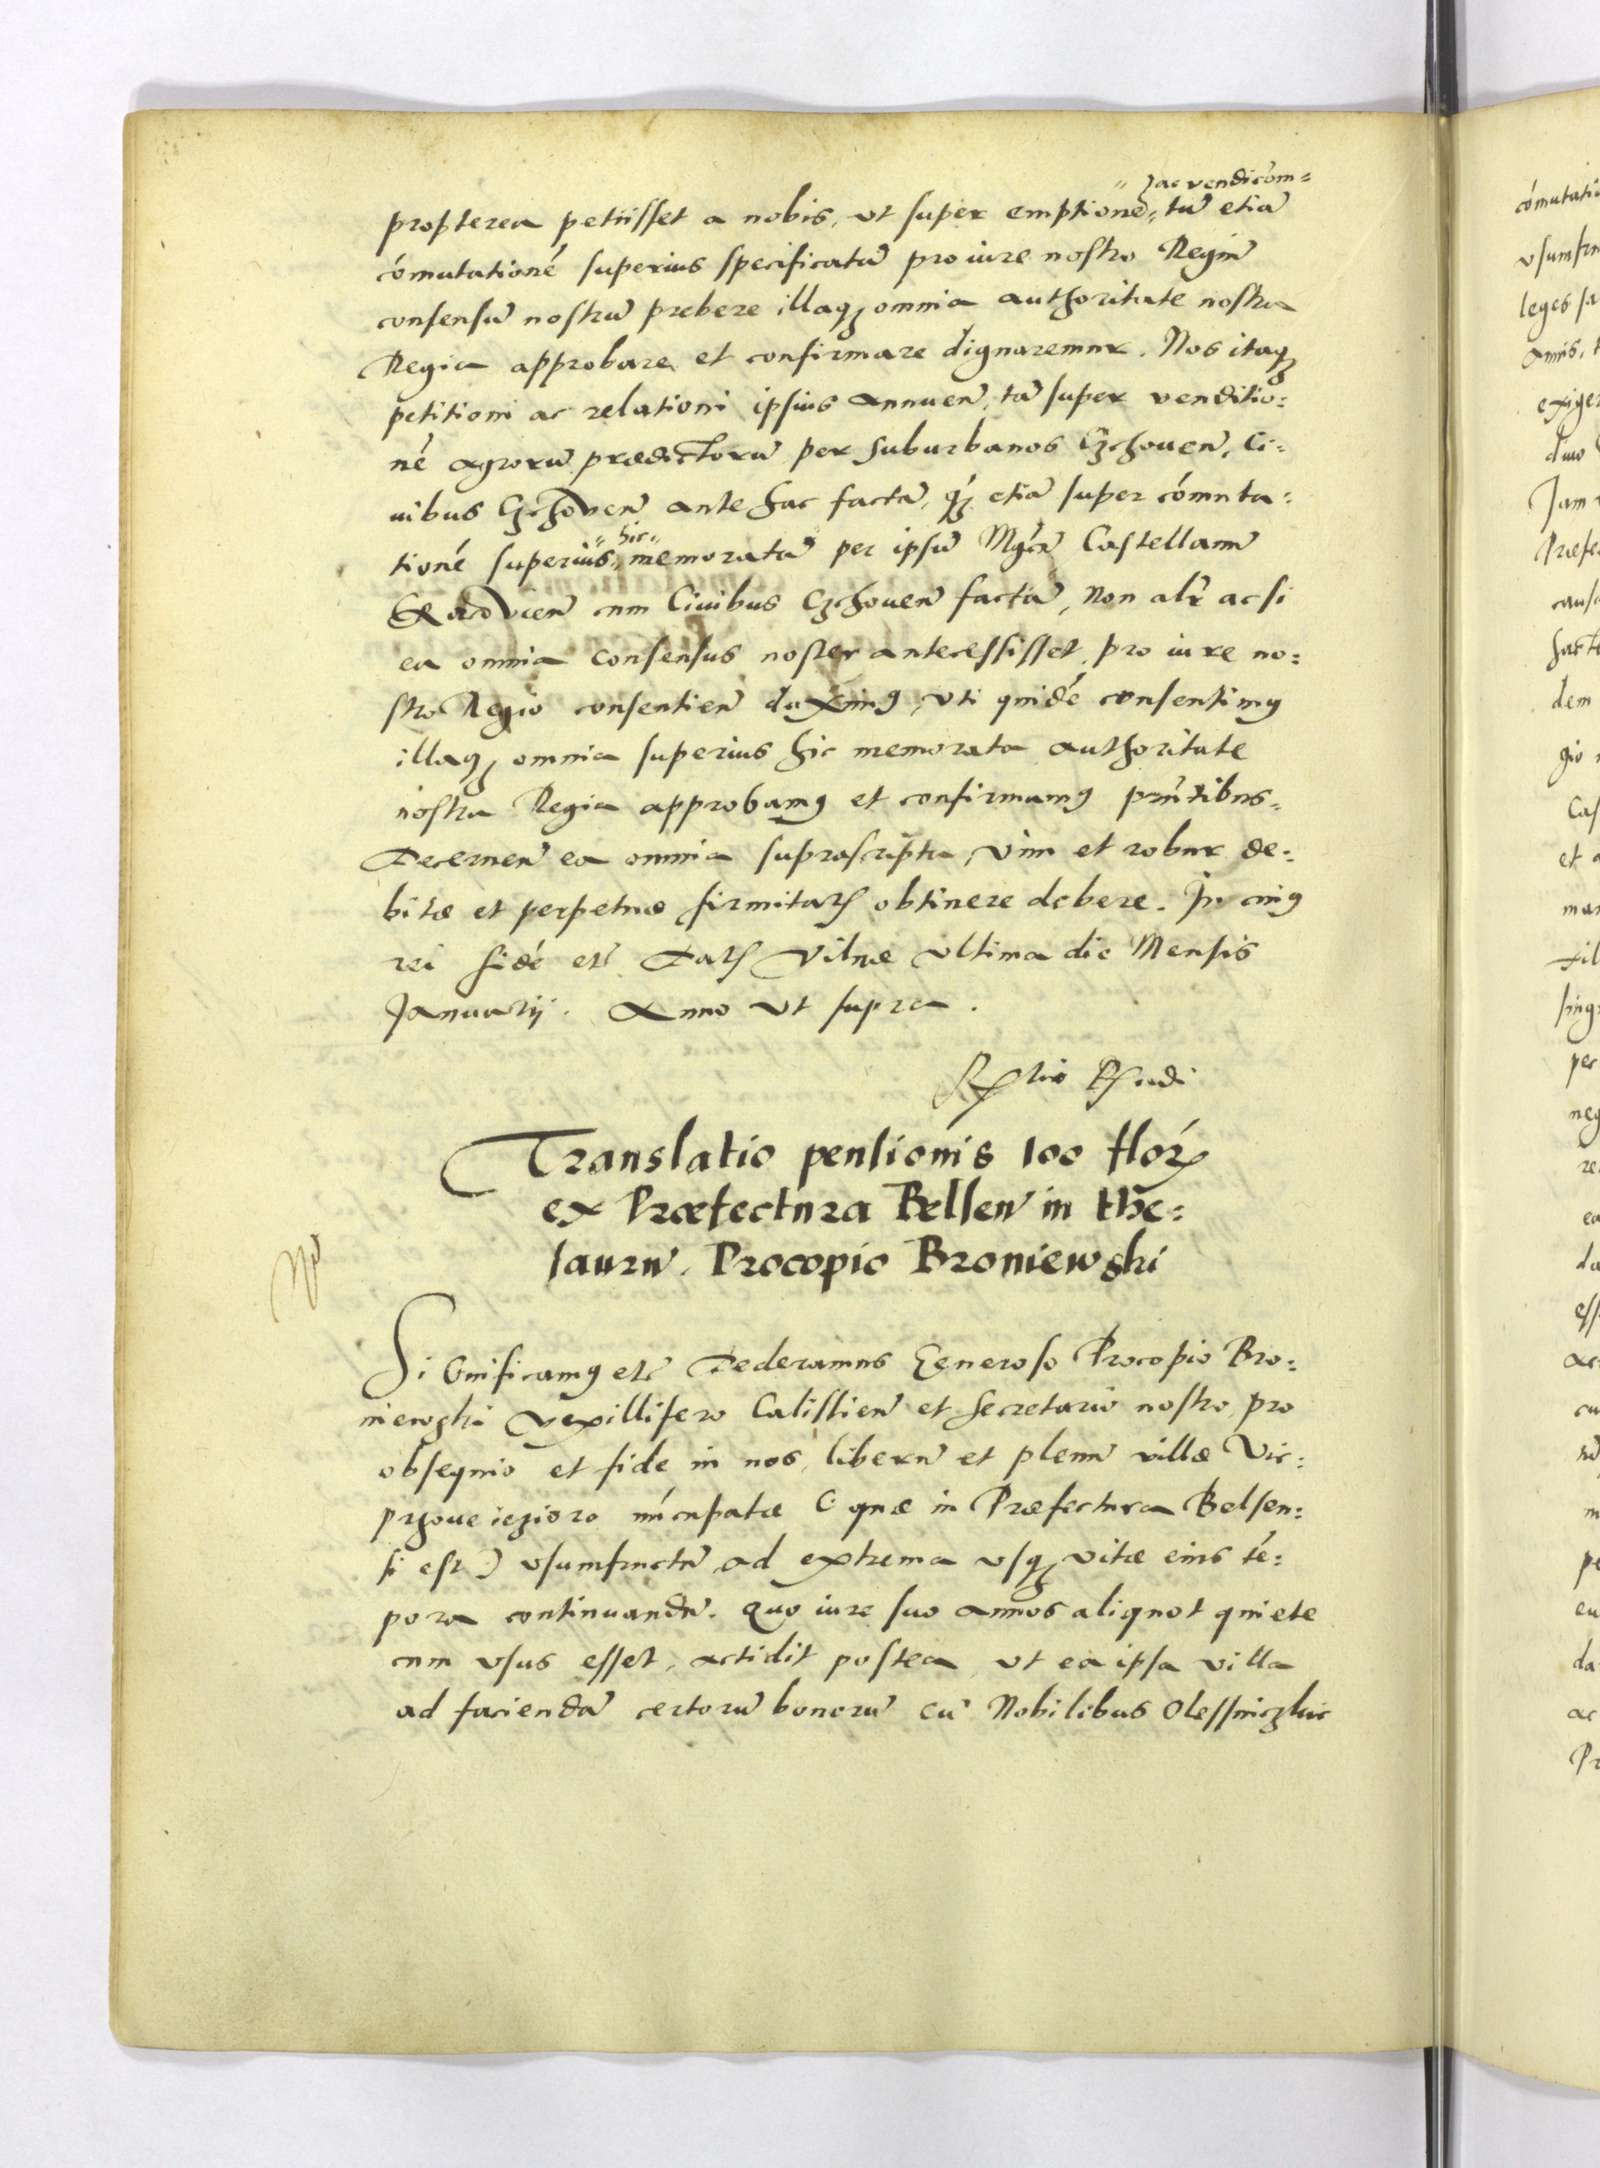 ac vendicõm=
propterea petiisset a nobis, vt super emptione, tũ etiã
cõmutationẽ superius specificatã pro iure nostro Regiũ
consensũ nostrũ prebere illaq; omnia authoritate nostra
Regia approbare et confirmare dignaremur. Nos itaq;
petitioni ac relationi ipsius annuen̄, tã super venditio=
nẽ agrorũ prædictorũ per suburbanos Czchouen̄, Ci=
uibus Czchouen̄ ante hac factã, q; etiã super cõmuta=
hic
tionẽ superius, memoratã per ipsũ Mgcũ Castellanũ
cum Ciuibus Czchouen̄ factã, Non alr̃ ac si
ea omnia consensus noster antecessisset, pro iure no=
stro Regio consentien̄ duximꝰ, vti quidẽ consentimꝰ
illaq; omnia superius hic memorata authoritate
nostra Regia approbamꝰ et confirmamꝰ pñtibus.
Decernen̄ ea omnia suprascripta, vim et robur de=
bitæ et perpetuæ firmitatꝭ obtinere debere. In cuiꝰ
rei fidẽ etc̃ Datꝭ Vilnæ vltima die Mensis
Januarij. Anno vt supra.
Translatio pensionis 100 flor̃
ex Præfectura Belsen̄ in the=
saurũ. Procopio Broniewski
Significamꝰ etc̃ Dederamus Generoso Procopio Bro=
niewski Vexillifero Calissien̄ et Secretario nostro, pro
obsequio et fide in nos, liberũ et plenũ villæ Vie=
przoue iezioro nũcupatæ (quæ in Præfectura Belsen=
si est) vsumfructũ ad extrema vsq; vitæ eius tẽ=
pora continuandũ. Quo iure suo annos aliquot quiete
cum vsus esset, actidit postea, vt ea ipsa villa
ad faciendã certorũ bonorũ cũ Nobilibus Olessniczkie